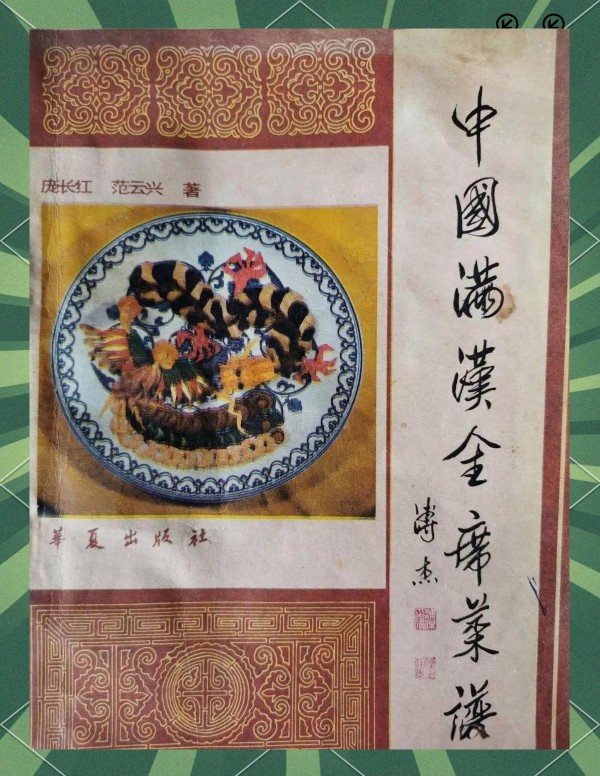 庞长红 范云兴 著
華夏出版社
中國滿漢全席菜譜
溥杰